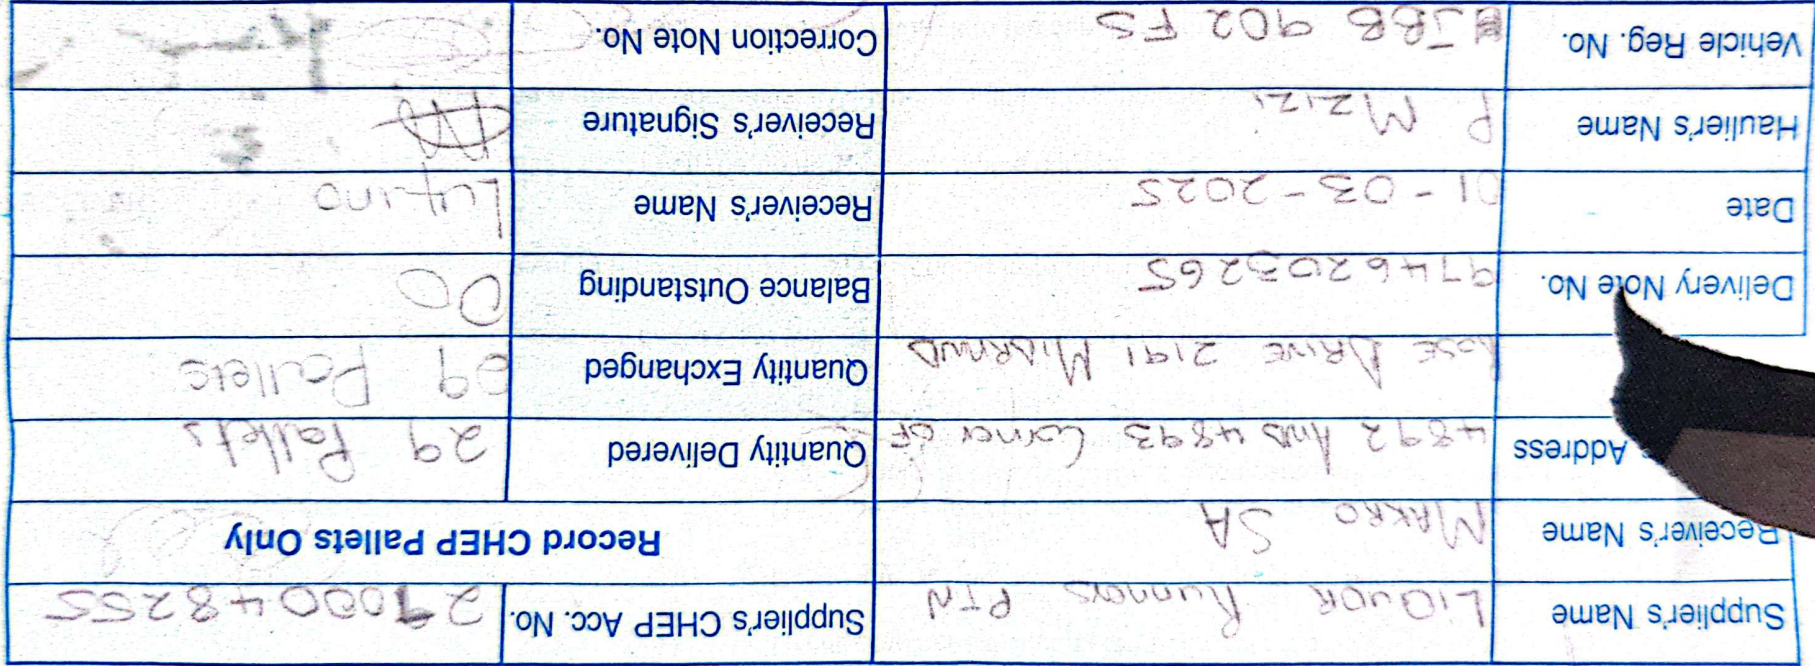 Supplier's Name LIQUOR Runners PTN Supplier's CHEP Acc. No. 2900048255
Receiver's Name MAKRO SA Record CHEP Pallets Only
Address 4892 AND 4893 Corner OF Quantity Delivered 29 Pallets
DRIVE 2191 Quantity Exchanged 09 Pallets
Delivery Note No. 97462033265 Balance Outstanding 00
Date 01-03-2025 Receiver's Name
Haulier's Name P Mzizi Receiver's Signature
Vehicle Reg. No. JBB 902 FS Correction Note No.